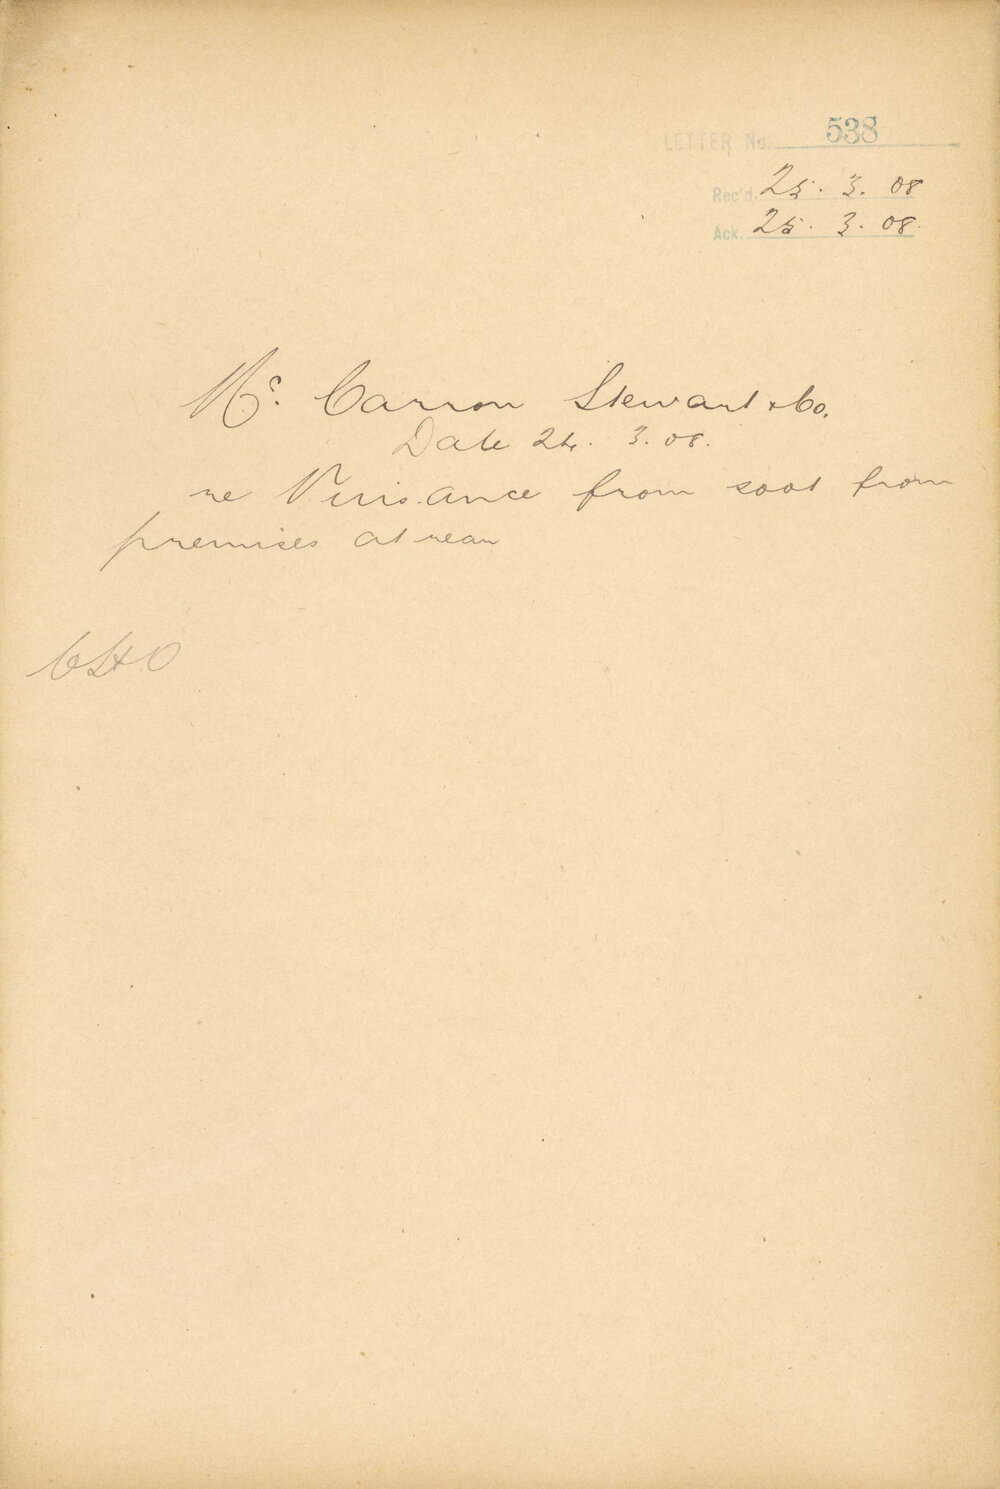 LETTER No. 538
Rec'd. 25. 3. 08
Ack. 25. 3. 08.
Mc. Carron Stewart & Co.
Date 24. 3. 08.
re Nuisance from soot from
premises at rear
CSO